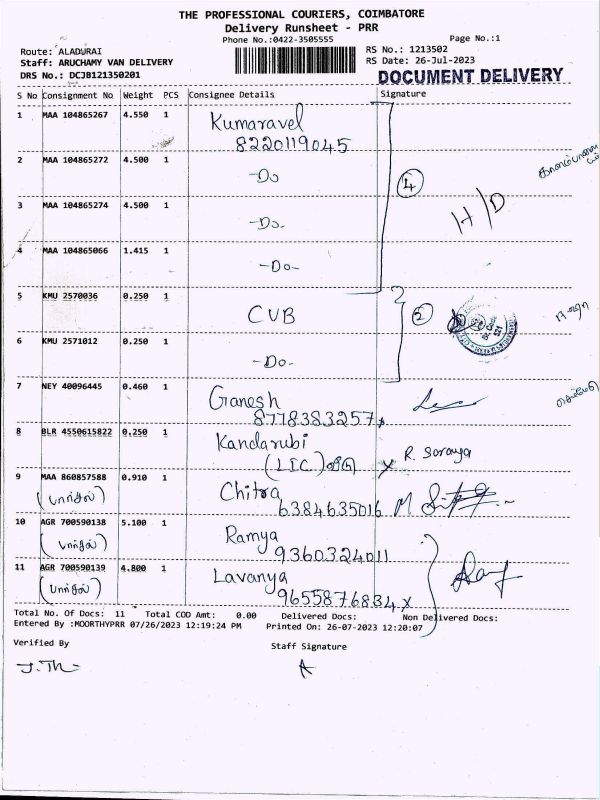 THE PROFESSIONAL COURIERS, COIMBATORE
Delivery Runsheet - PRR
Phone No.:0422-3505555
Page No.:1
Route: ALADURAI
RS No.: 1213502
Staff: ARUCHAMY VAN DELIVERY
RS Date: 26-Jul-2023
DRS No.: DCJB121350201
DOCUMENT DELIVERY
S No Consignment No Weight PCS Consignee Details Signature
1 MAA 104865267 4.550 1 Kumaravel
8220119045
2 MAA 104865272 4.500 1 -Do
4
H/D
3 MAA 104865274 4.500 1 -Do.
4 MAA 104865066 1.415 1 -Do-
5 KMU 2570036 0.250 1 CUB
2
6 KMU 2571012 0.250 1 -Do-
7 NEY 40096445 0.460 1 Ganesh
8778383257
8 BLR 4550615822 0.250 1 Kandarubi
(LIC) வீடு
R. Soraya
9 MAA 860857588 0.910 1 Chitra
(பார்சல்)
6384635016
10 AGR 700590138 5.100 1 Ramya
(பார்சல்)
9360324011
11 AGR 700590139 4.800 1 Lavanya
(பார்சல்)
9655876834
Total No. Of Docs: 11 Total COD Amt: 0.00 Delivered Docs: Non Delivered Docs:
Entered By :MOORTHYPRR 07/26/2023 12:19:24 PM Printed On: 26-07-2023 12:20:07
Verified By
Staff Signature